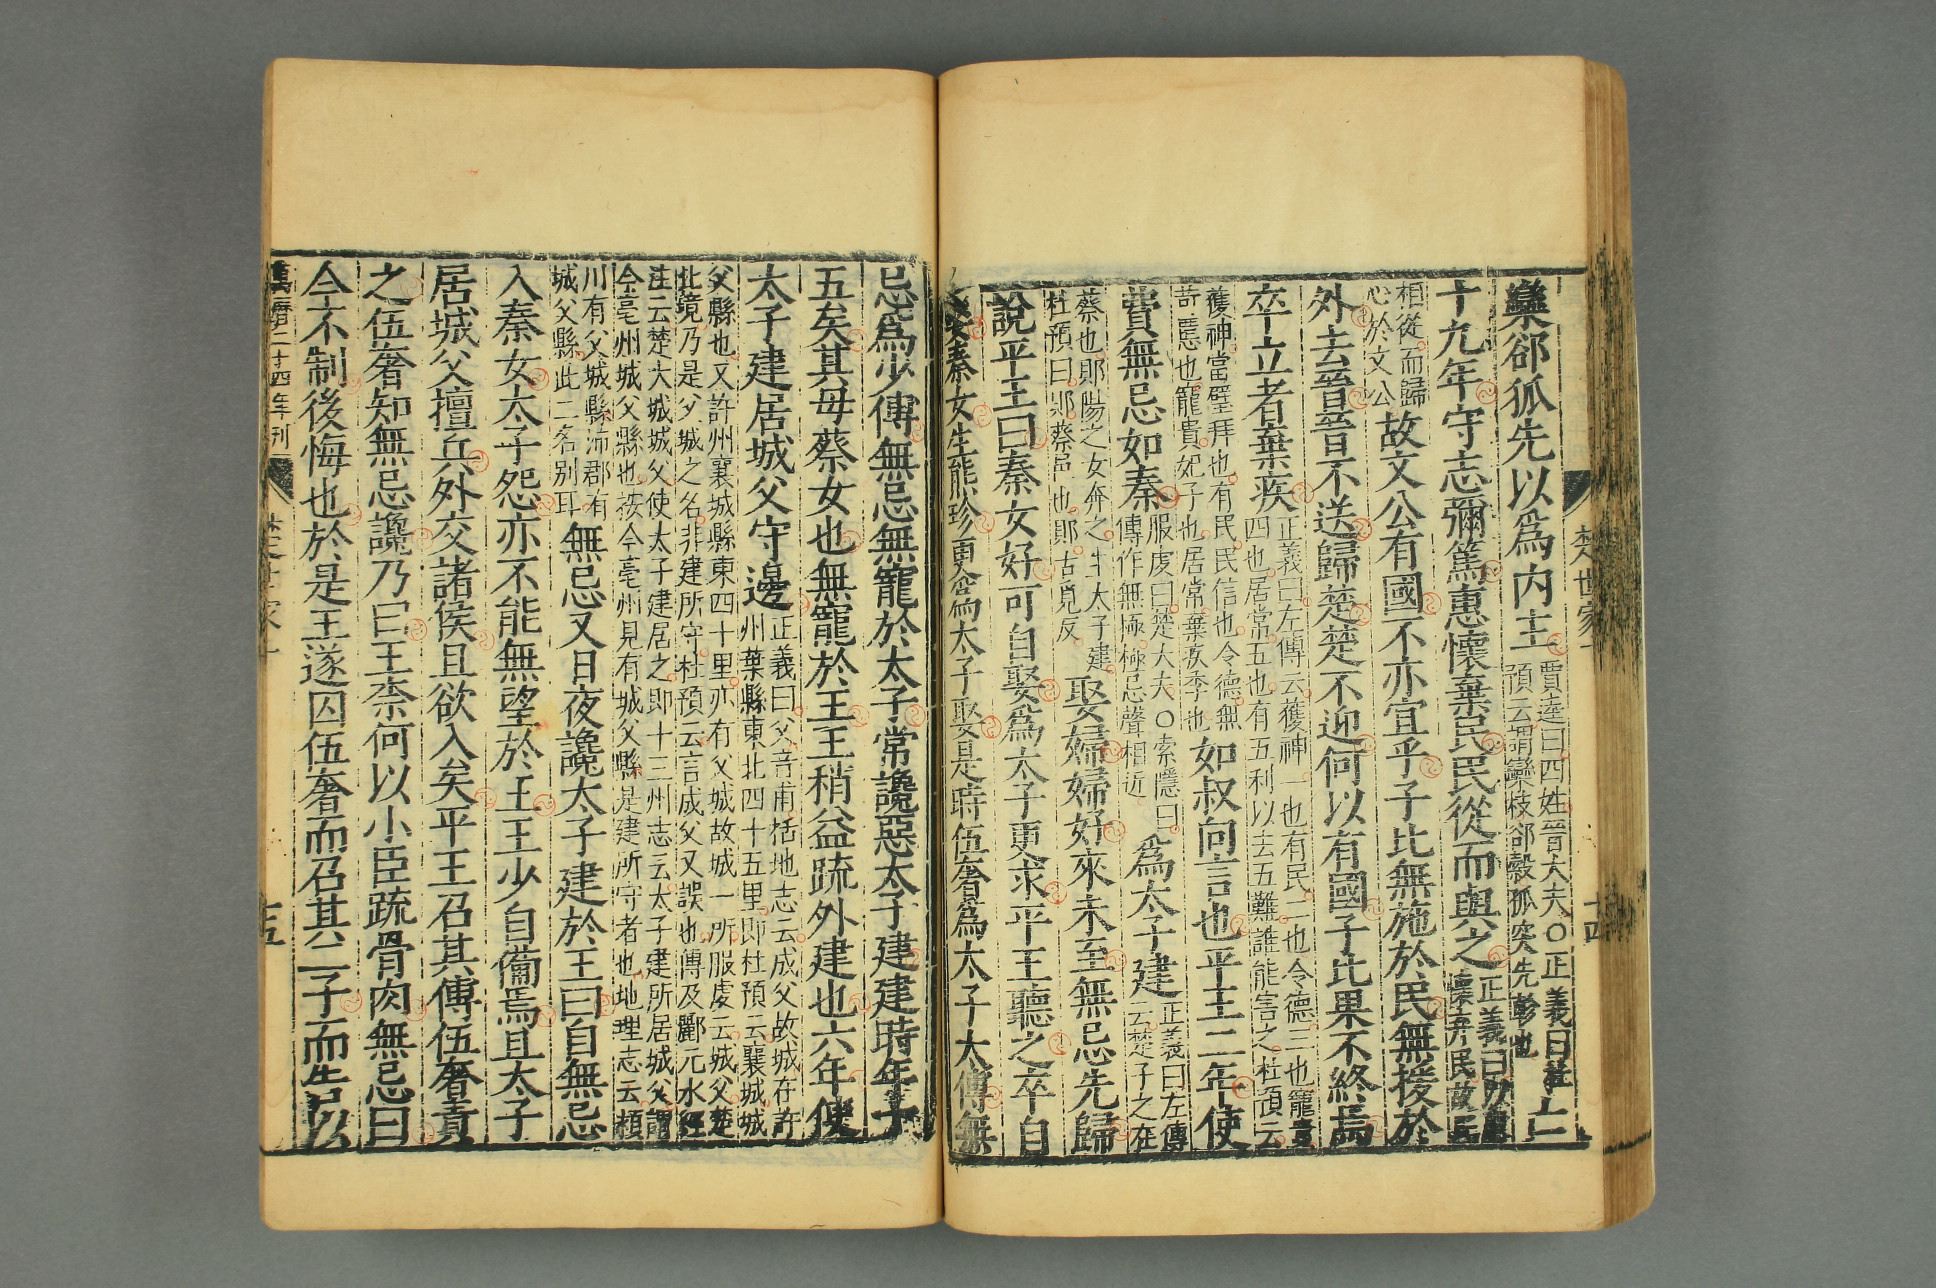 楚世家
十四
欒郤狐先以爲内主賈逵曰四姓晉大夫○正義曰杜預云謂欒枝郤縠狐突先軫也亡
十九年守志彌篤惠懷棄民民從而與之正義曰以惠懷棄民故民
相從而歸心於文公故文公有國不亦宜乎子比無施於民無援於
外去晉晉不送歸楚楚不迎何以有國子比果不終焉
卒立者棄疾正義曰左傳云獲神一也有民二也令德三也寵貴四也居常五也有五利以去五難誰能害之杜預云
獲神當璧拜也有民民信也令德無苛慝也寵貴妃子也居常棄疾季也如叔向言也平王二年使
費無忌如秦服虔曰楚大夫○索隱曰傳作無極極忌聲相近爲太子建正義曰左傳云楚子之在
蔡也郹陽之女奔之生太子建杜預曰郹蔡邑也郹古覓反娶婦婦好來未至無忌先歸
說平王曰秦女好可自娶爲太子更求平王聽之卒自
娶秦女生熊珍更爲太子娶是時伍奢爲太子太傅無
忌爲少傅無忌無寵於太子常讒惡太子建建時年十
五矣其母蔡女也無寵於王王稍益疏外建也六年使
太子建居城父守邊正義曰父音甫括地志云成父故城在許州葉縣東北四十五里即杜預云襄城城
父縣也又許州襄城縣東四十里亦有父城故城一所服虔云城父楚北境乃是父城之名非建所守杜預云言成父又誤也傳及酈元水經
注云楚大城城父使太子建居之即十三州志云太子建所居城父謂今亳州城父縣也按今亳州見有城父縣是建所守者也地理志云潁
川有父城縣沛郡有城父縣此二名别耳無忌又日夜讒太子建於王曰自無忌
入秦女太子怨亦不能無望於王王少自備焉且太子
居城父擅兵外交諸侯且欲入矣平王召其傅伍奢責
之伍奢知無忌讒乃曰王柰何以小臣疏骨肉無忌曰
今不制後悔也於是王遂囚伍奢而召其二子而告以
萬曆二十四年刊
十五